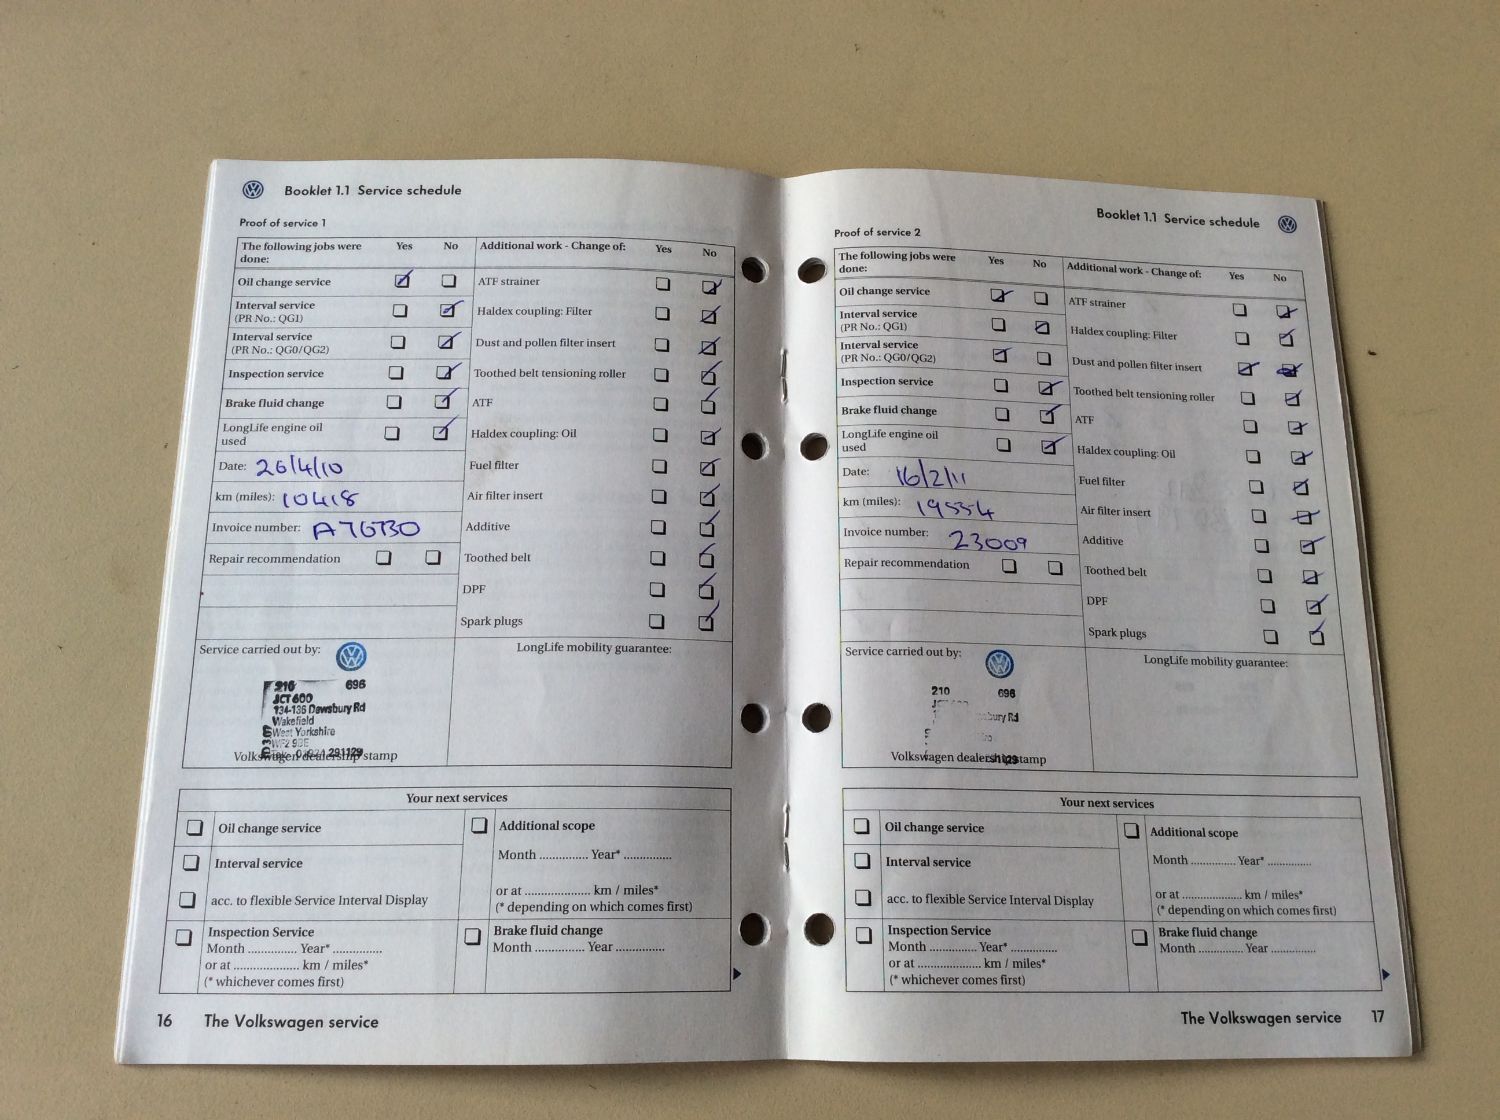 Booklet 1.1 Service schedule
Proof of service 1
The following jobs were done:
Yes No
Additional work - Change of:
Yes No
Oil change service
Interval service
(PR No.: QG1)
Interval service
(PR No.: QG0/QG2)
Inspection service
Brake fluid change
LongLife engine oil
used
Date: 26/4/10
km (miles): 10418
Invoice number:
Repair recommendation
ATF strainer
Haldex coupling: Filter
Dust and pollen filter insert
Toothed belt tensioning roller
ATF
Haldex coupling: Oil
Fuel filter
Air filter insert
Additive
Toothed belt
DPF
Spark plugs
Service carried out by:
210 696
JCT600
134-136 Dewsbury Rd
Wakefield
West Yorkshire
291129
Volkswagen dealership stamp
LongLife mobility guarantee:
Your next services
Oil change service
Interval service
acc. to flexible Service Interval Display
Inspection Service
Month .............. Year* ..............
or at .................... km / miles*
(* whichever comes first)
Additional scope
Month .............. Year* ..............
or at .................... km / miles*
(* depending on which comes first)
Brake fluid change
Month .............. Year ..............
16 The Volkswagen service
Booklet 1.1 Service schedule
Proof of service 2
The following jobs were
done:
Yes No
Additional work - Change of:
Yes No
Oil change service
Interval service
(PR No.: QG1)
Interval service
(PR No.: QG0/QG2)
Inspection service
Brake fluid change
LongLife engine oil
used
Date: 16/2/11
km (miles): 19554
Invoice number: 23009
Repair recommendation
ATF strainer
Haldex coupling: Filter
Dust and pollen filter insert
Toothed belt tensioning roller
ATF
Haldex coupling: Oil
Fuel filter
Air filter insert
Additive
Toothed belt
DPF
Spark plugs
Service carried out by:
210 696
Volkswagen dealership stamp
LongLife mobility guarantee:
Your next services
Oil change service
Interval service
acc. to flexible Service Interval Display
Inspection Service
Month .............. Year* ..............
or at .................... km / miles*
(* whichever comes first)
Additional scope
Month .............. Year* ..............
or at .................... km / miles*
(* depending on which comes first)
Brake fluid change
Month .............. Year ..............
The Volkswagen service 17